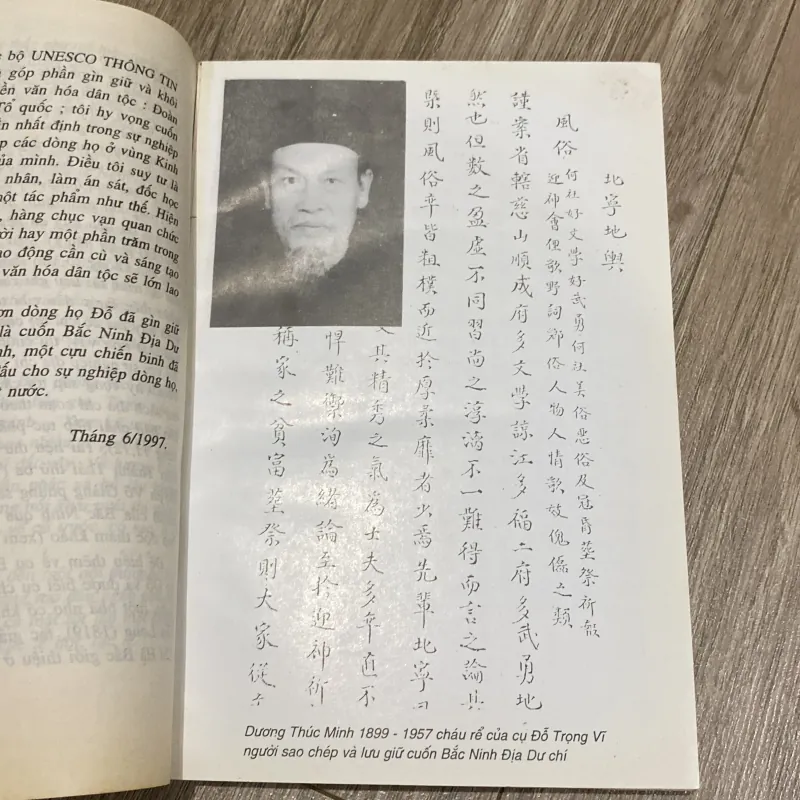 bộ UNESCO THÔNG TIN
góp phần gìn giữ và khôi
nền văn hóa dân tộc : Đoàn
Tổ quốc ; tôi hy vọng cuốn
nhất định trong sự nghiệp
các dòng họ ở vùng Kinh
của mình. Điều tôi suy tư là
nhân, làm án sát, đốc học
một tác phẩm như thế. Hiện
, hàng chục vạn quan chức
hay một phần trăm trong
lao động cần cù và sáng tạo
văn hóa dân tộc sẽ lớn lao
ơn dòng họ Đỗ đã gìn giữ
là cuốn Bắc Ninh Địa Dư
một cựu chiến binh đã
đấu cho sự nghiệp dòng họ,
nước.
Tháng 6/1997.
北寧地輿
風俗 何社好文學好武勇何社美俗惡俗及冠昏塟祭祈報
迎神會但歌野詞鄉俗人物人情歌妓傀儡之類
謹案省轄慈山順成府多文學諒江多福二府多武勇地
然也但數之盈虛不同習尚之淳漓不一難得而言之論其
槩則風俗率皆粗樸而近於厚柔靡者少焉先輩北寧
其精秀之氣為士夫多率直不
悍難禦洵為緒論至於迎神祈
稱家之貧富塟祭則大家從
Dương Thúc Minh 1899 - 1957 cháu rể của cụ Đỗ Trọng Vĩ
người sao chép và lưu giữ cuốn Bắc Ninh Địa Dư chí